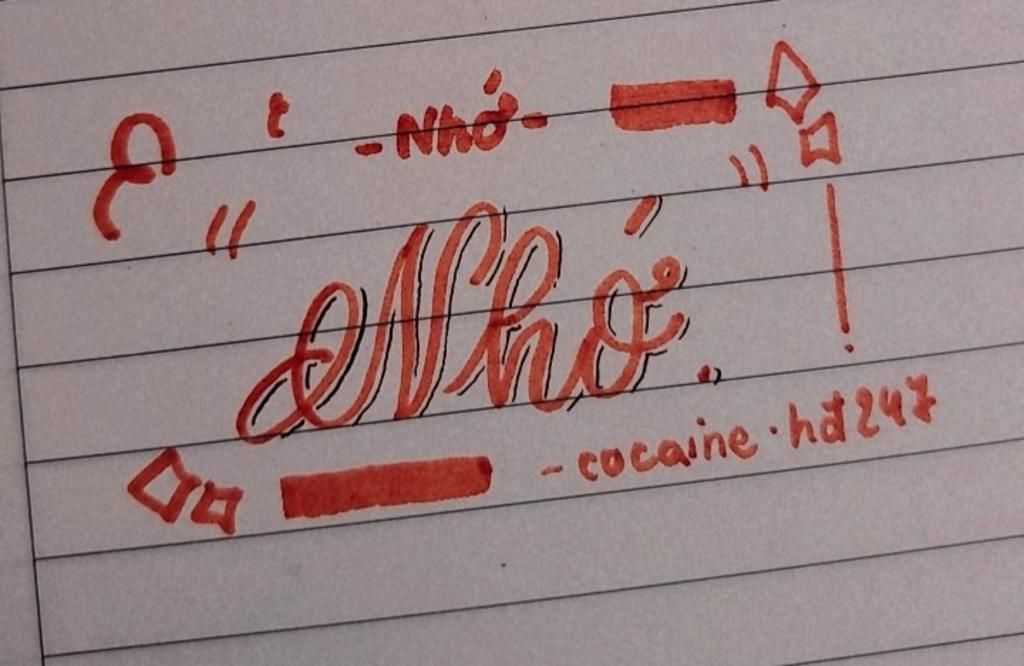 -Nhớ-
" Nhớ. "
- cocaine · hđ247